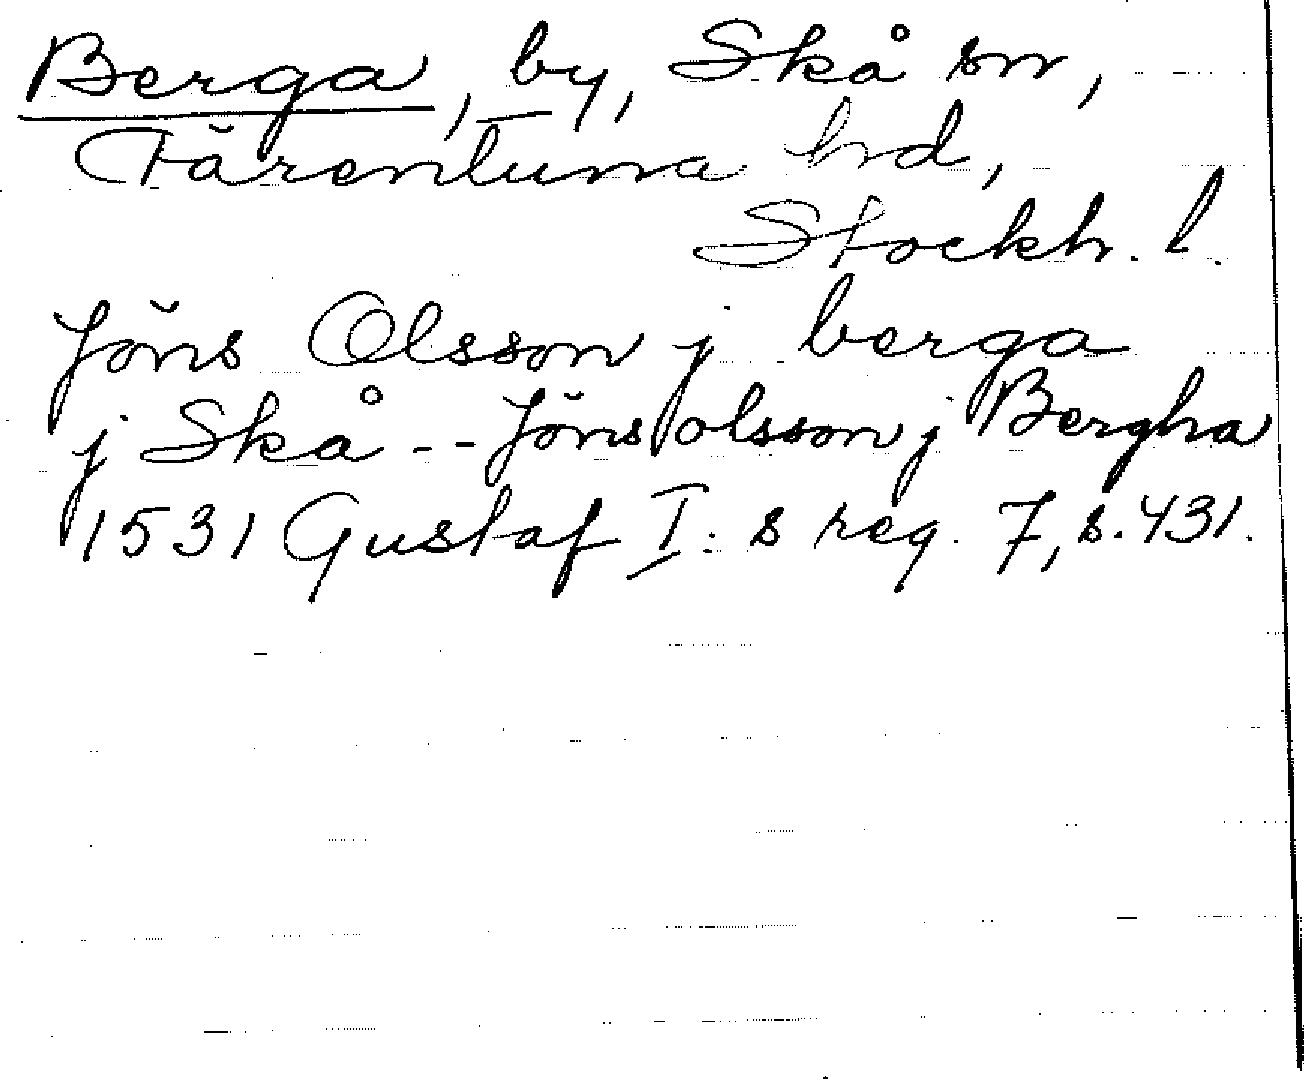 Berga, by, Skå sn,
Färentuna hd,
Stockh. l.
Jöns Olsson j berga
j Skå -- Jöns olsson j Bergha
1531 Gustaf I: s reg. 7, s. 431.